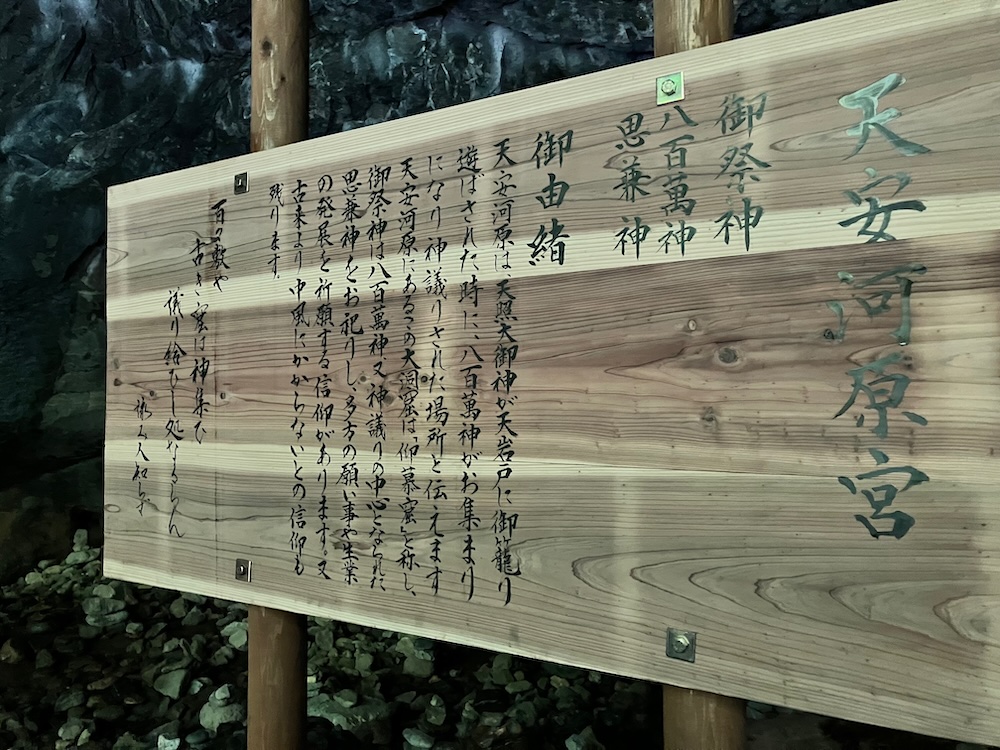 天安河原宮
御祭神
八百萬神
思兼神
御由緒
天安河原は、天照大御神が天岩戸に御籠り
遊ばされた時に、八百萬神がお集まり
になり神議りされた場所と伝えます
天安河原にあるこの大洞窟は「仰慕窟」と称し、
御祭神は八百萬神又、神議りの中心となられた、
思兼神をお祀りし、多方の願い事や生業
の発展を祈願する信仰があります。又
古来より中風にかからないとの信仰も
残ります。
百の数や
古き窟は神集ひ
議り給ひし処なるらん
人知らず